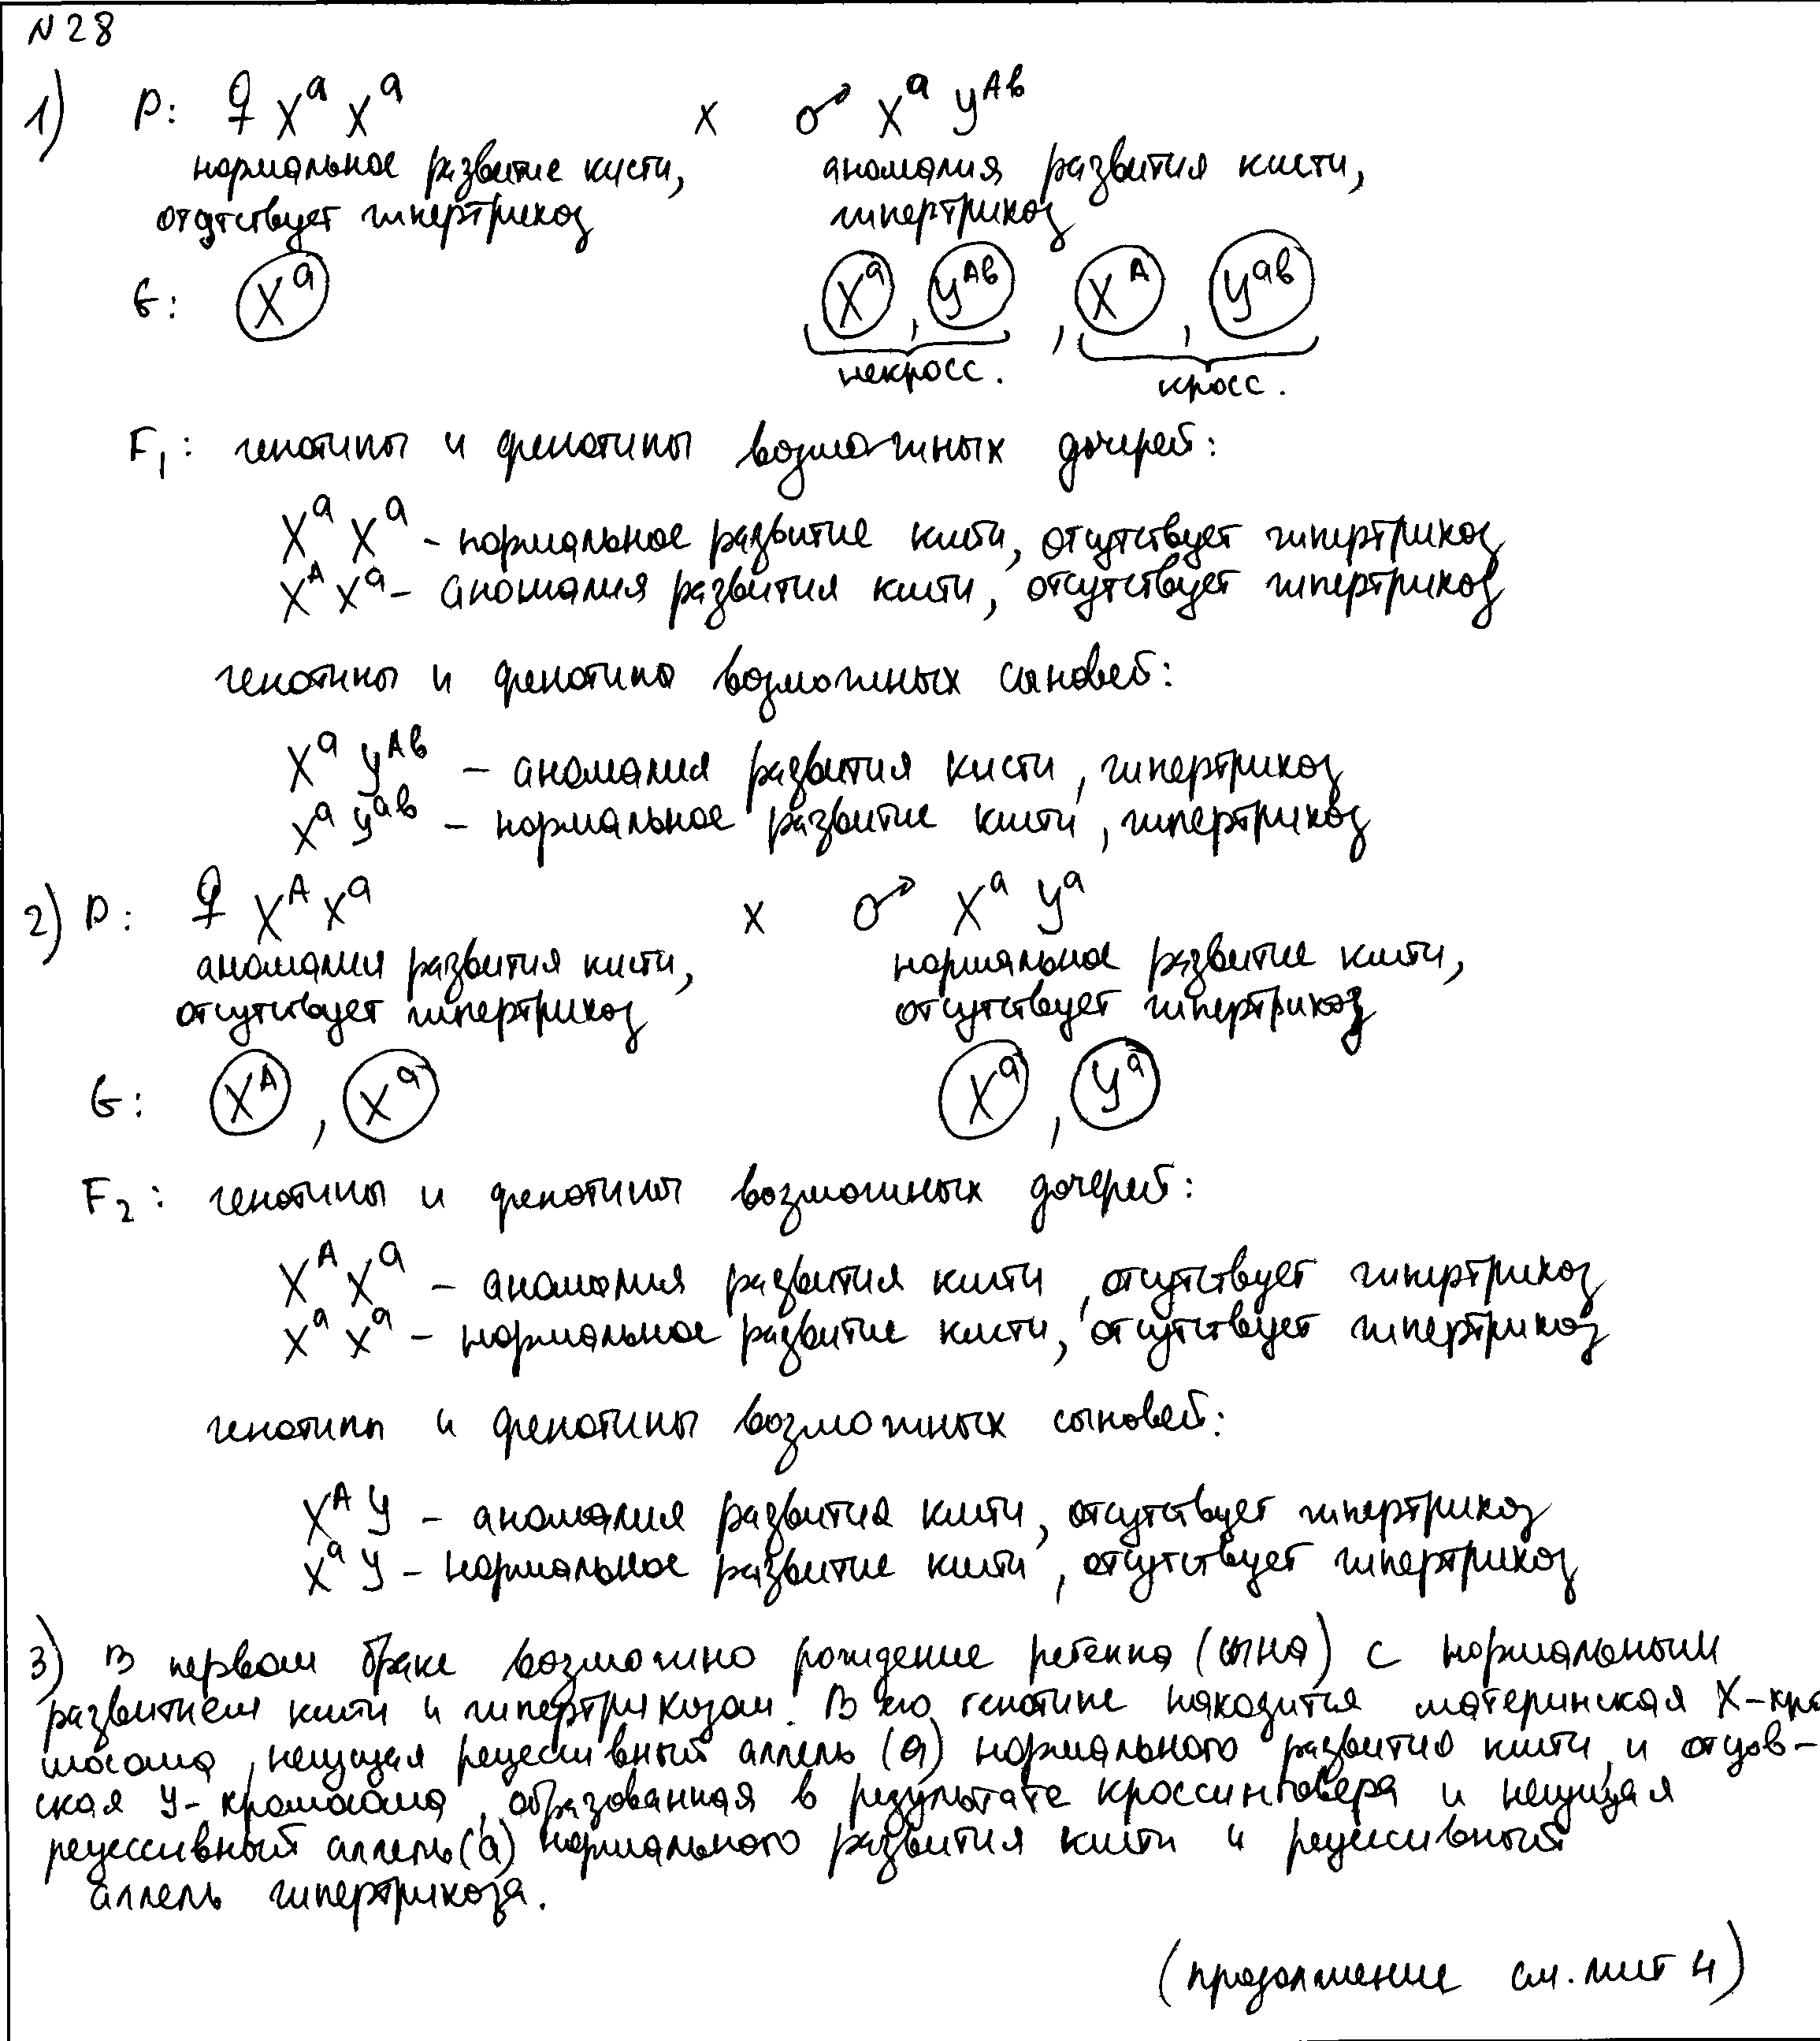 N 28
1) P: ♀ Xᵃ Xᵃ x ♂ Xᵃ Yᴬᵇ
нормальное развитие кисти, аномалия развития кисти,
отсутствует гипертрихоз гипертрихоз
G: Xᵃ Xᵃ, Yᴬᵇ, Xᴬ, Yᵃᵇ
некросс. кросс.
F₁: генотипы и фенотипы возможных дочерей:
Xᵃ Xᵃ - нормальное развитие кисти, отсутствует гипертрихоз
Xᴬ Xᵃ - аномалия развития кисти, отсутствует гипертрихоз
генотипы и фенотипы возможных сыновей:
Xᵃ Yᴬᵇ - аномалия развития кисти, гипертрихоз
Xᵃ Yᵃᵇ - нормальное развитие кисти, гипертрихоз
2) P: ♀ Xᴬ Xᵃ x ♂ Xᵃ Yᵃ
аномалия развития кисти, нормальное развитие кисти,
отсутствует гипертрихоз отсутствует гипертрихоз
G: Xᴬ, Xᵃ Xᵃ, Yᵃ
F₂: генотипы и фенотипы возможных дочерей:
Xᴬ Xᵃ - аномалия развития кисти, отсутствует гипертрихоз
Xᵃ Xᵃ - нормальное развитие кисти, отсутствует гипертрихоз
генотипы и фенотипы возможных сыновей:
Xᴬ Y - аномалия развития кисти, отсутствует гипертрихоз
Xᵃ Y - нормальное развитие кисти, отсутствует гипертрихоз
3) В первом браке возможно рождение ребенка (сына) с нормальным
развитием кисти и гипертрихозом. В его генотипе находится материнская X-хро
мосома, несущая рецессивный аллель (a) нормального развития кисти, и отцов-
ская Y-хромосома, образованная в результате кроссинговера и несущая
рецессивный аллель (a) нормального развития кисти и рецессивный
аллель гипертрихоза.
(продолжение см. лист 4)